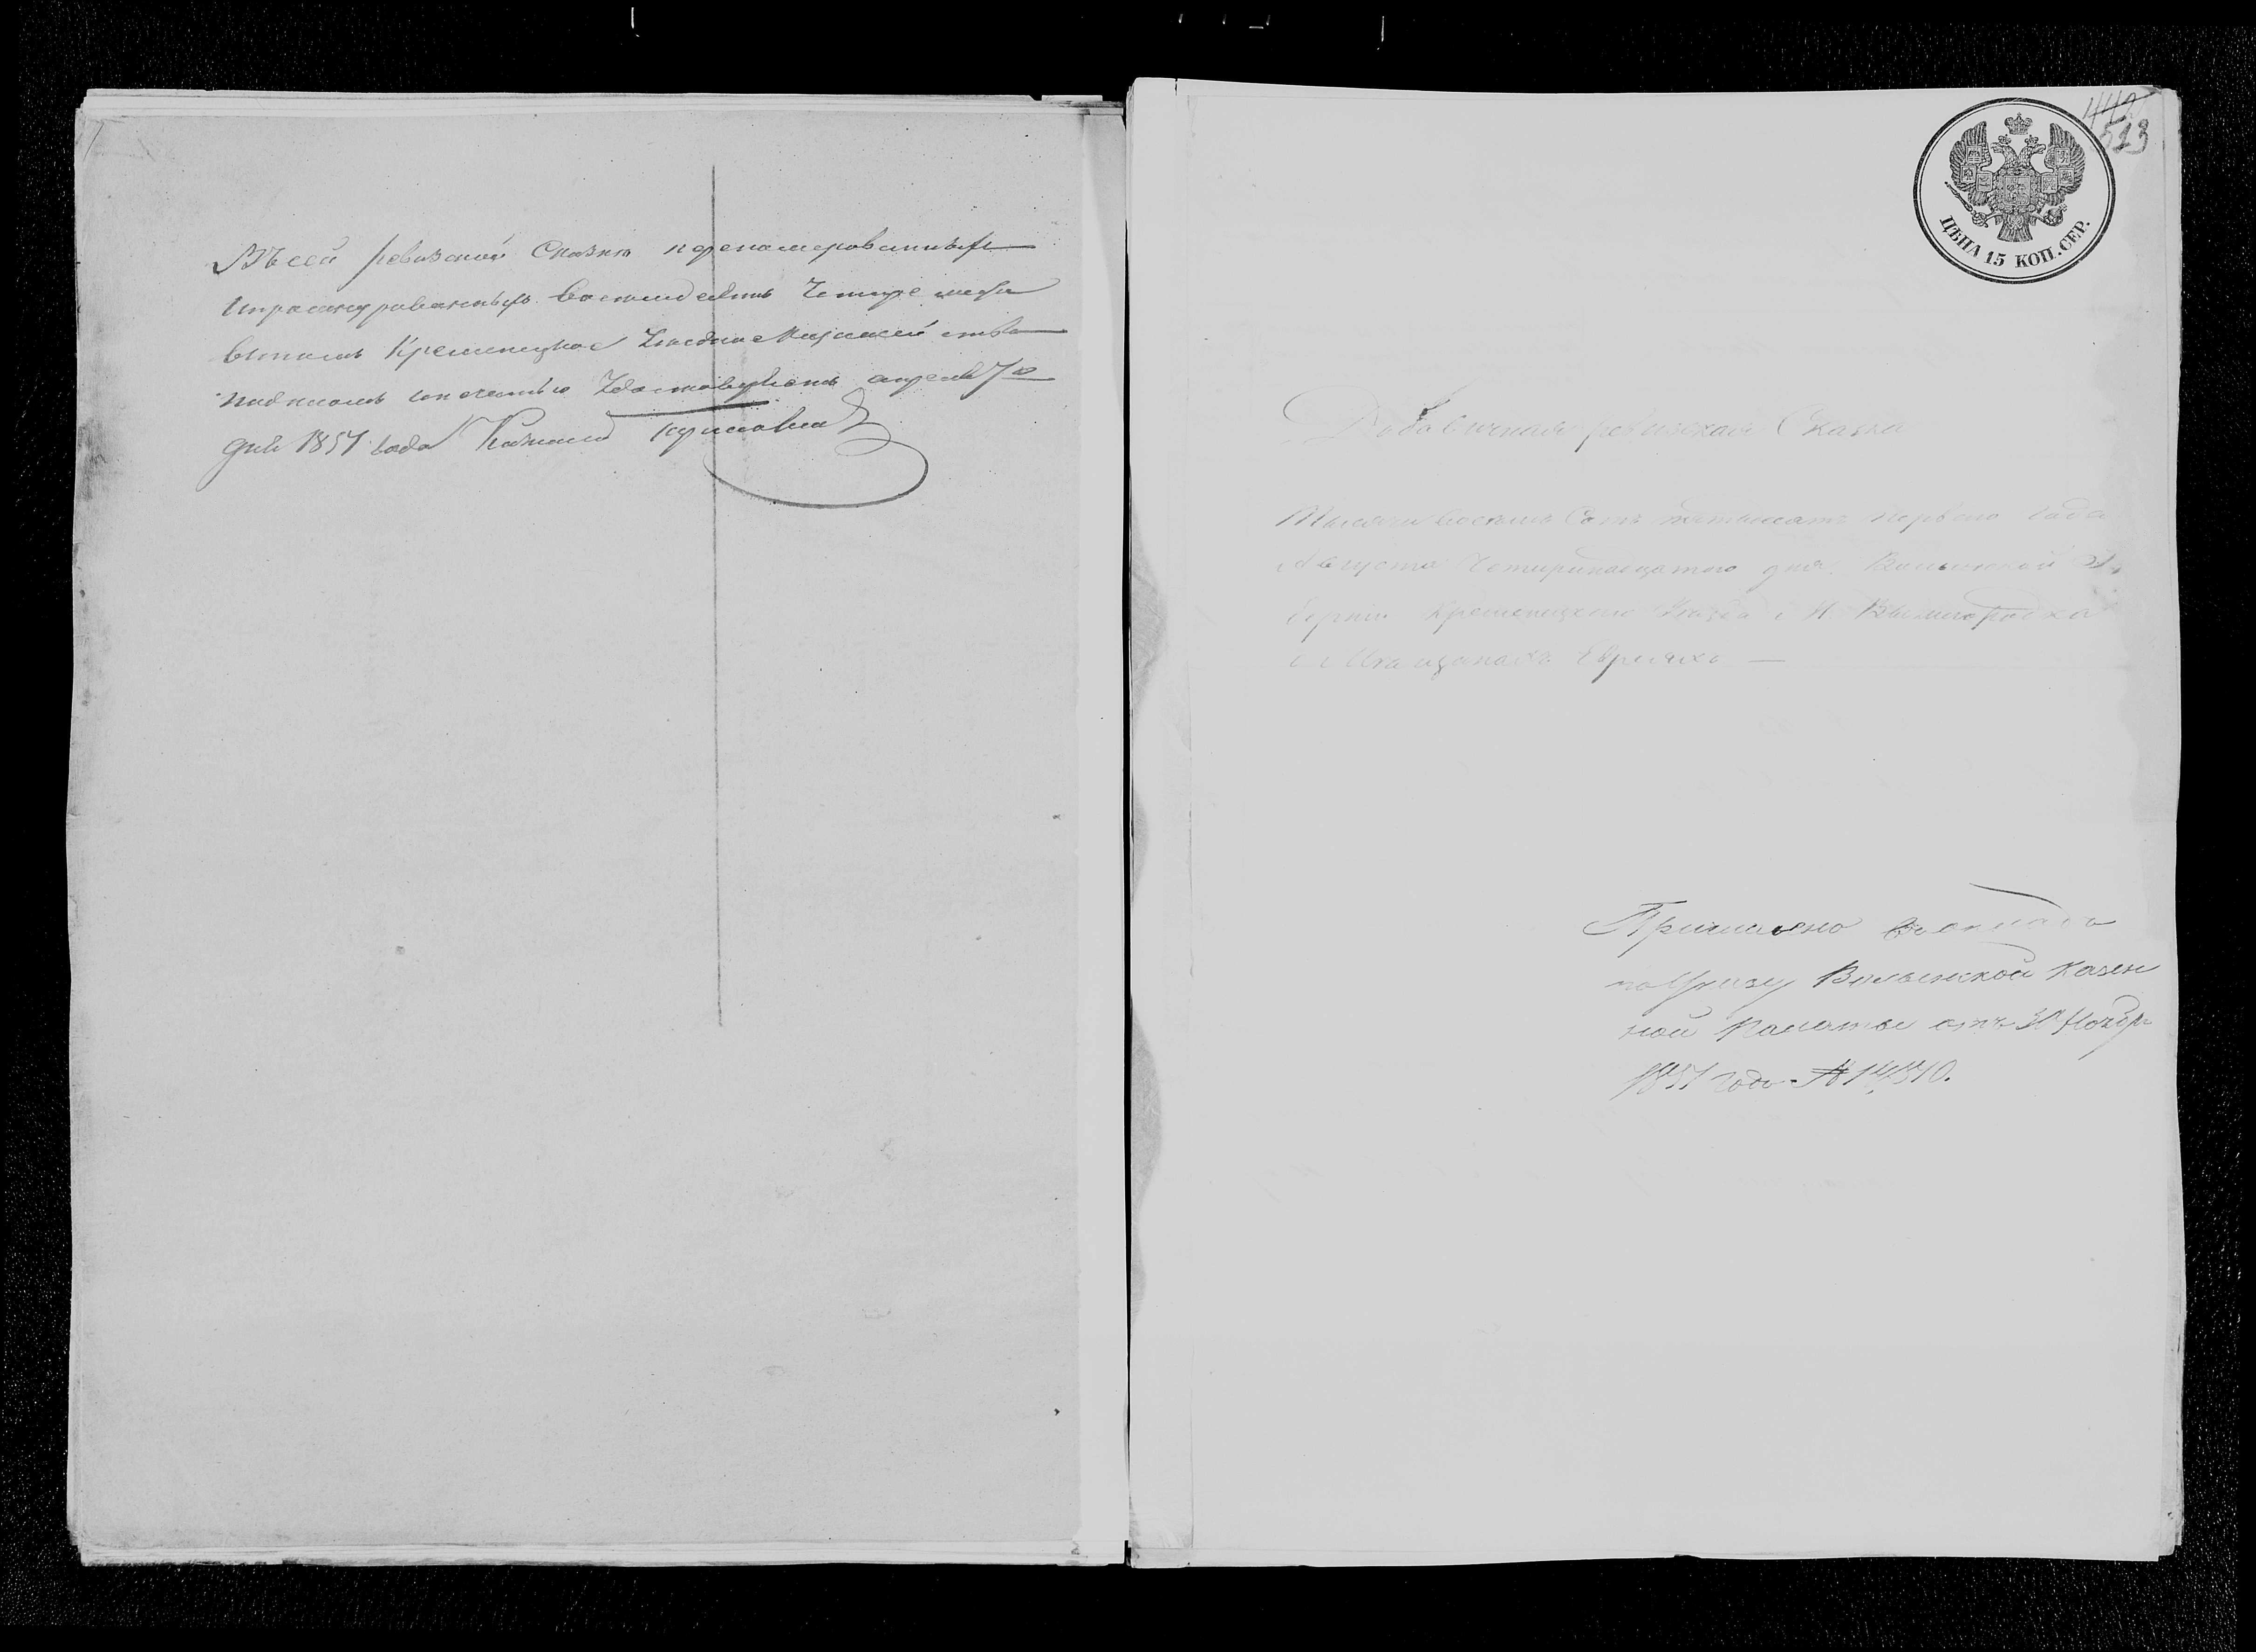 Въ сей ревизской сказки перенамерованныхъ
ипрошнурованныхъ восемьдесятъ Четыре листа
Кременецкое
подписомъ ипечатью апреля 7го
дня 1851 года
442
513
ЦѢНА 15 КОП. СЕР.
Добавочная ревизская Сказка
Тысяча восемь Сотъ пятьдесятъ первого Года
Августа Четырнадцатого дня. Волынской Гу
бернии Кременецкого Уезда М. Вышгородка
о Мещанахъ Евреяхъ —
Причислено въ окладъ
по Указу Волынской Казен
ной Палаты отъ 30 Ноября
1851 года № 14310.